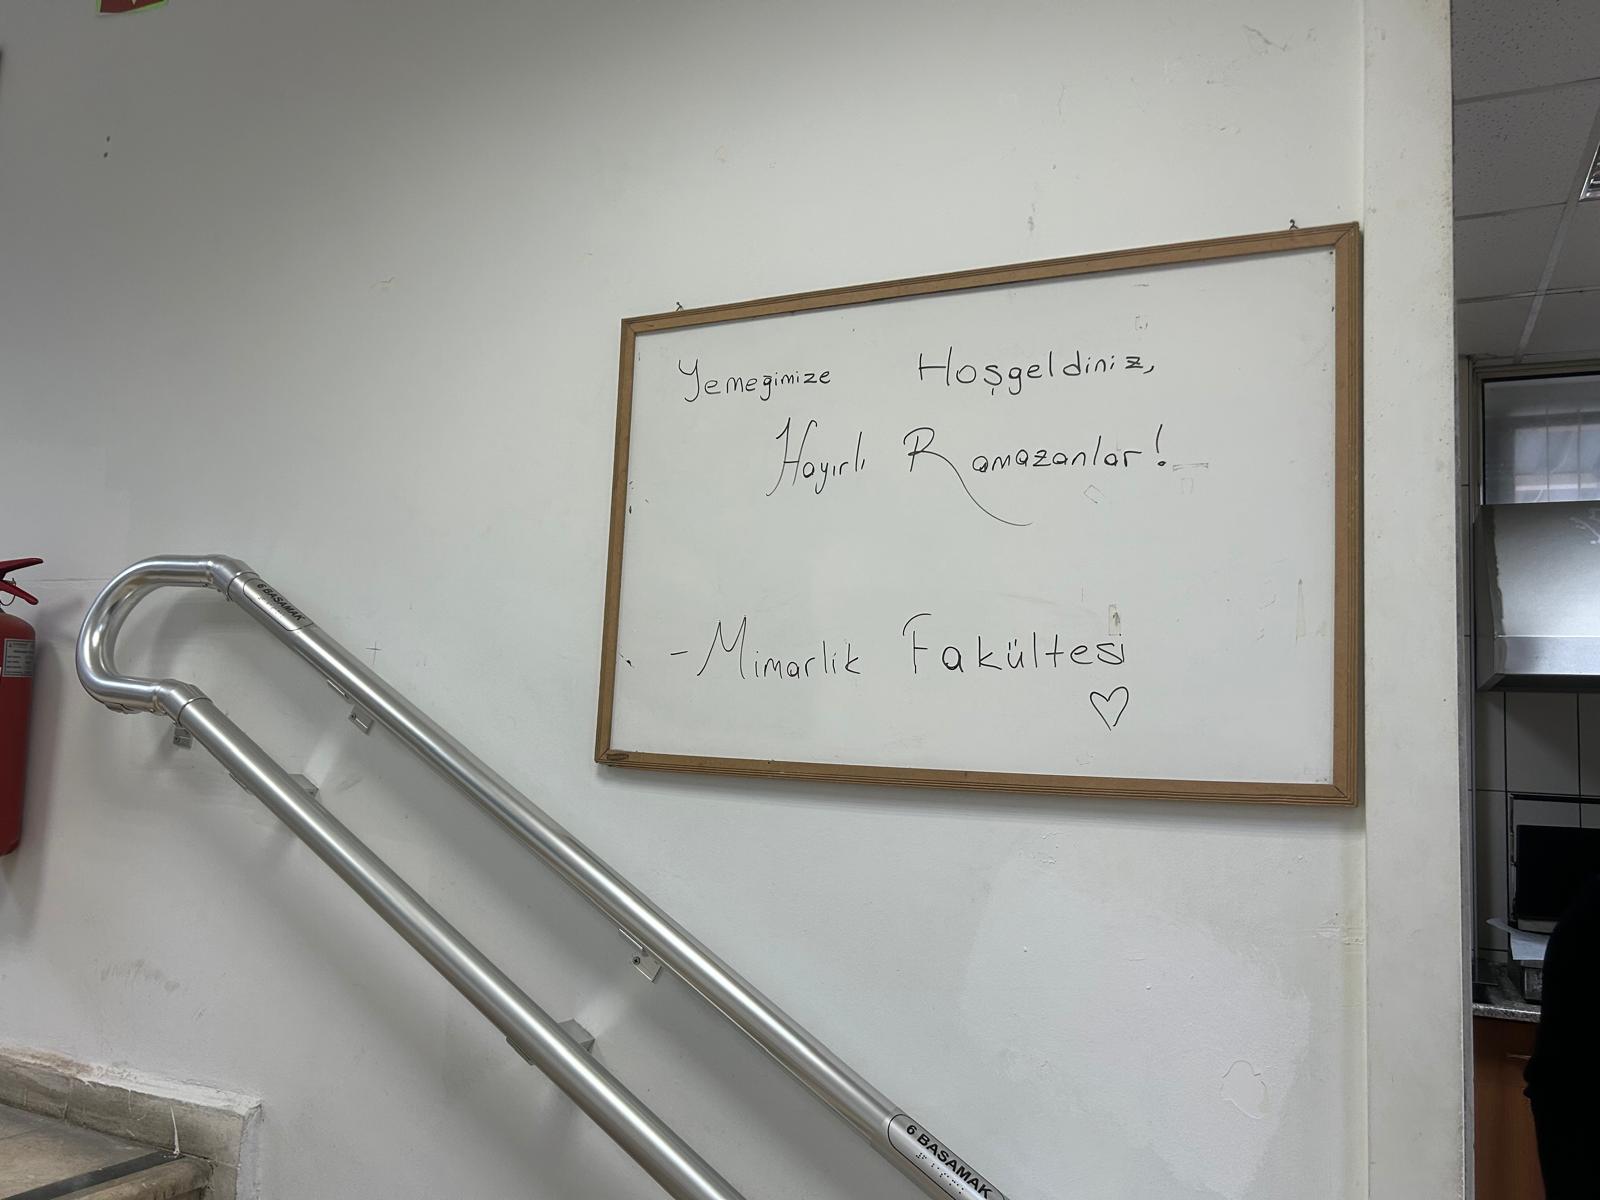 Yemeğimize Hoşgeldiniz,
Hayırlı Ramazanlar!
- Mimarlik Fakültesi
♡
6 BASAMAK
6 BASAMAK